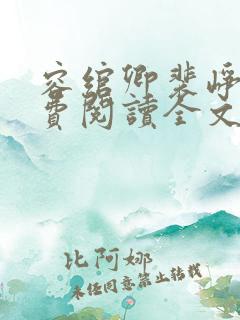 容綰卿裴崢
費閱讀全文
比阿娜
未经同意禁止转载